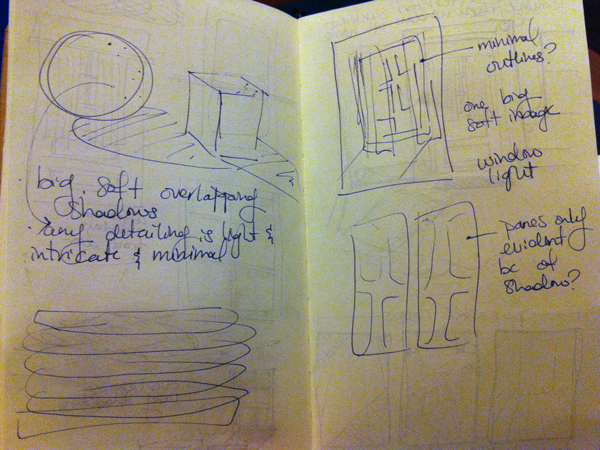 big, soft overlapping
shadows
· any detailing is light &
intricate & minimal
minimal
outlines?
one big
soft image
window
light
panes only
evident
bc of
shadow?